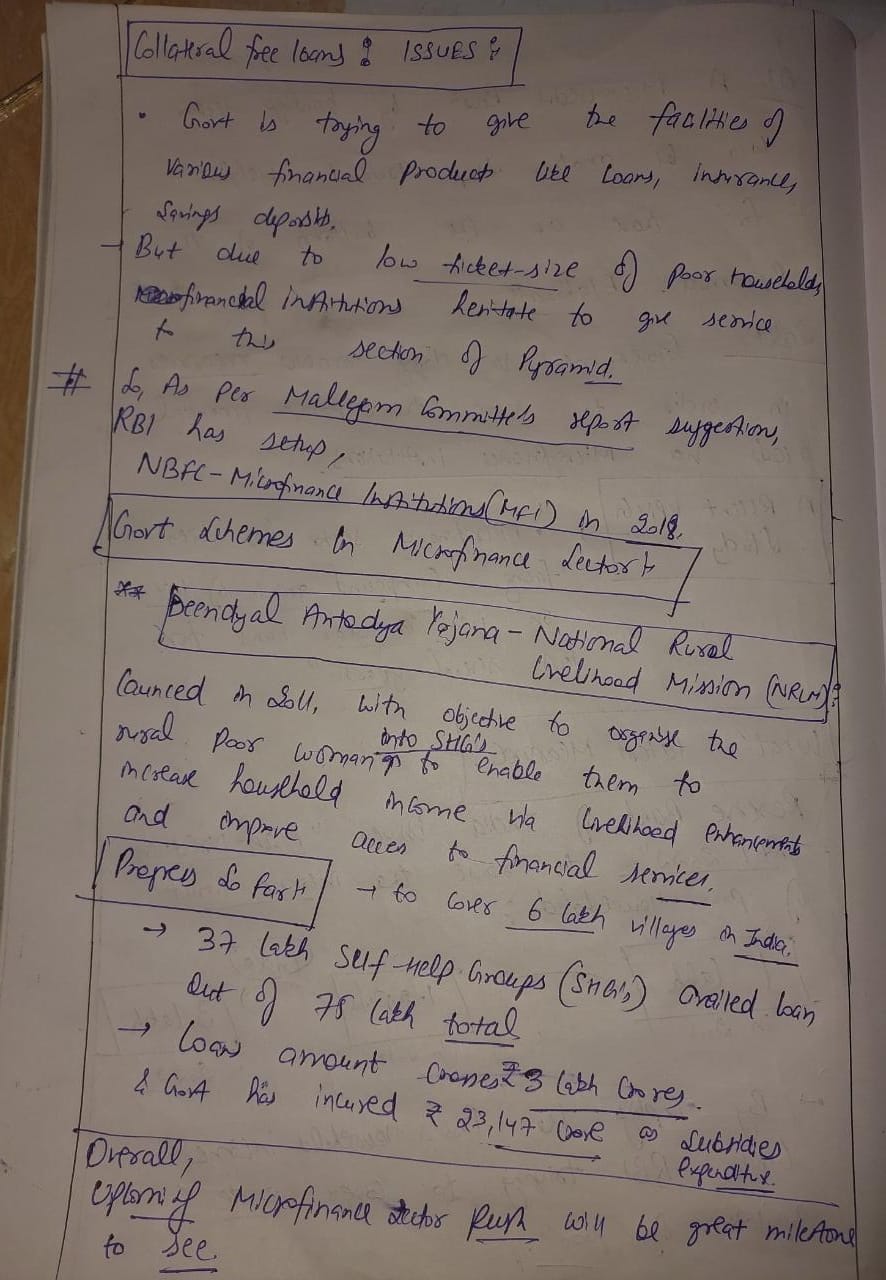 Collateral free loans : ISSUES :
• Govt is trying to give the facilities of
various financial products like loans, insurances,
Savings deposits.
→ But due to low ticket-size of poor households,
financial institutions hesitate to give service
to this section of Pyramid.
# So, As per Mallegam Committe's report suggestion,
RBI has setup,
NBFC - Microfinance Institutions (MFI) in 2018.
Govt Schemes in Microfinance Sector :
** Deendyal Antodya Yojana - National Rural
Livelihood Mission (NRLM) :
Launced in 2011, with objective to organise the
rural poor woman into SHG's to enable them to
increase household income via livelihood enhancements
and improve acces to financial services.
Progress So far : → to cover 6 lakh villages in India.
→ 37 lakh Self-Help Groups (SHG's) availed loan
out of 78 lakh total
→ loans amount crores ₹3 lakh Crores.
& Govt has incured ₹ 23,147 crore as Subsidies
Expenditure.
Overall,
Upcoming Microfinance Sector Push will be great milestone
to see.